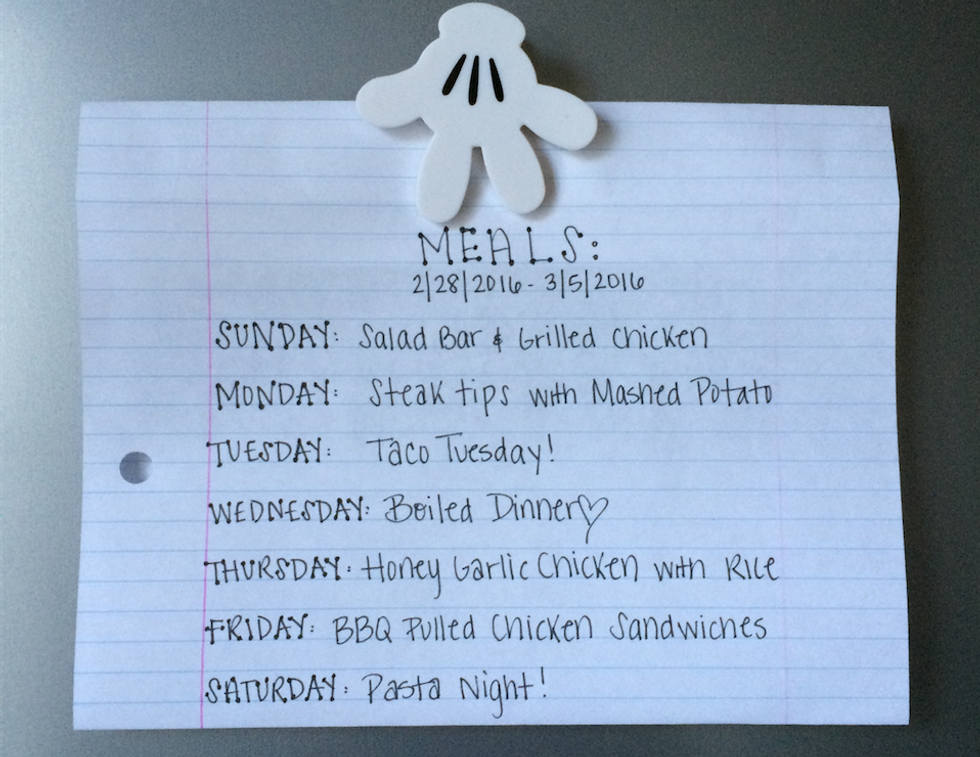 MEALS:
2/28/2016 - 3/5/2016
SUNDAY: Salad Bar & Grilled Chicken
MONDAY: Steak tips with Mashed Potato
TUESDAY: Taco Tuesday!
WEDNESDAY: Boiled Dinner♡
THURSDAY: Honey Garlic Chicken with Rice
FRIDAY: BBQ Pulled Chicken Sandwiches
SATURDAY: Pasta Night!